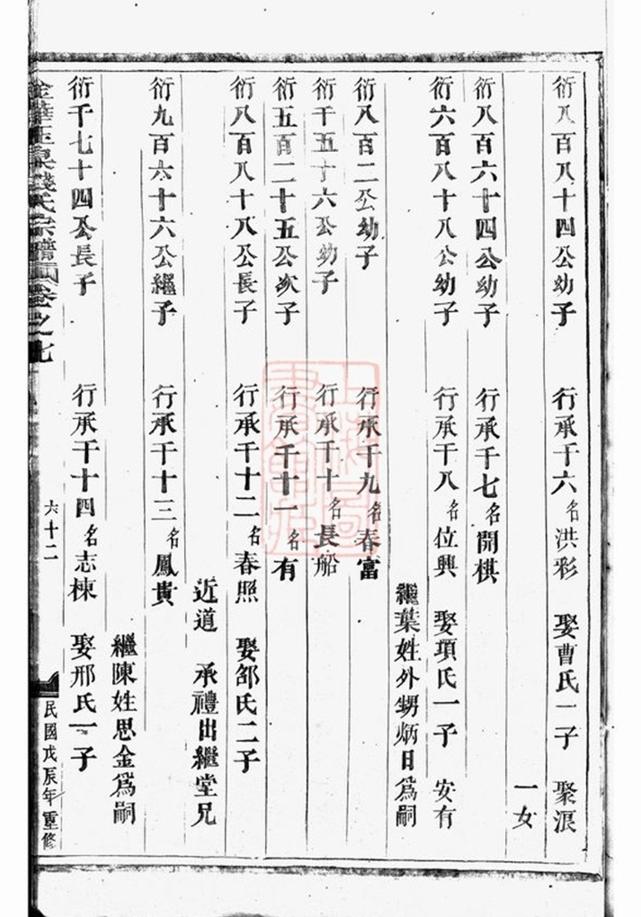 衍八百八十四公幼子 行承千六名洪彩 娶曹氏一子 聚浪
一女
衍八百六十四公幼子 行承千七名開棋
衍六百八十八公幼子 行承千八名位興 娶項氏一子 安有
繼葉姓外甥炳日爲嗣
衍八百二公幼子 行承千九名春富
衍千五十六公幼子 行承千十名長船
衍五百二十五公次子 行承千十一名有
衍八百八十八公長子 行承千十二名春照 娶邵氏二子
近道 承禮出繼堂兄
衍九百六十六公繼子 行承千十三名鳳貴
繼陳姓思金爲嗣
衍千七十四公長子 行承千十四名志棟 娶邢氏一子
金華玉泉錢氏宗譜 卷之七 六十二 民國戊辰年重修